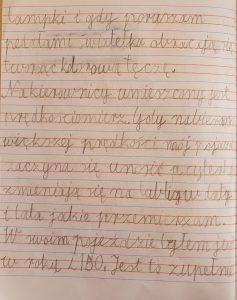 lampki i gdy poruszam
pedałami światełka obracają się
tworząc kolorową tęczę.
Na kierownicy umieszczony jest
prędkościomierz. Gdy nabieram
większej prędkości mój pojazd
zaczyna się unosić a cyferki
zmieniają się na tablicy w lata
i lata jakie przemierzam.
W swoim pojeździe byłem już
w roku 2180. Jest to zupełnie